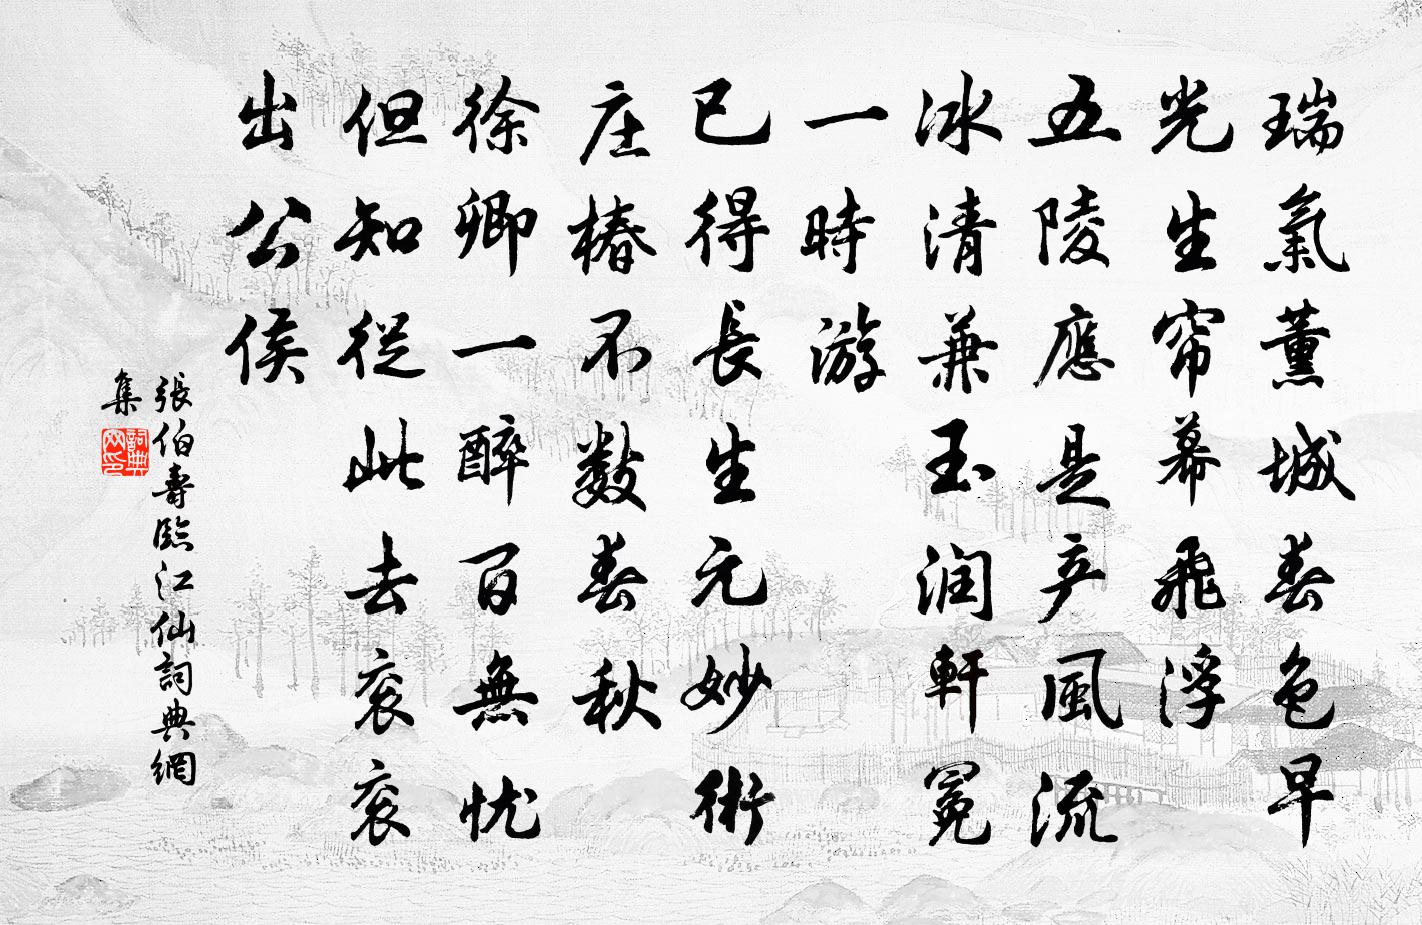 瑞氣薰城春色早
光生帘幕飛浮
五陵應是产風流
冰清兼玉润軒冕
一時游
已得長生元妙術
庄椿不数春秋
徐卿一醉百無忧
但知從此去衮衮
出公侯
張伯壽臨江仙詞典網
集
詞典网印